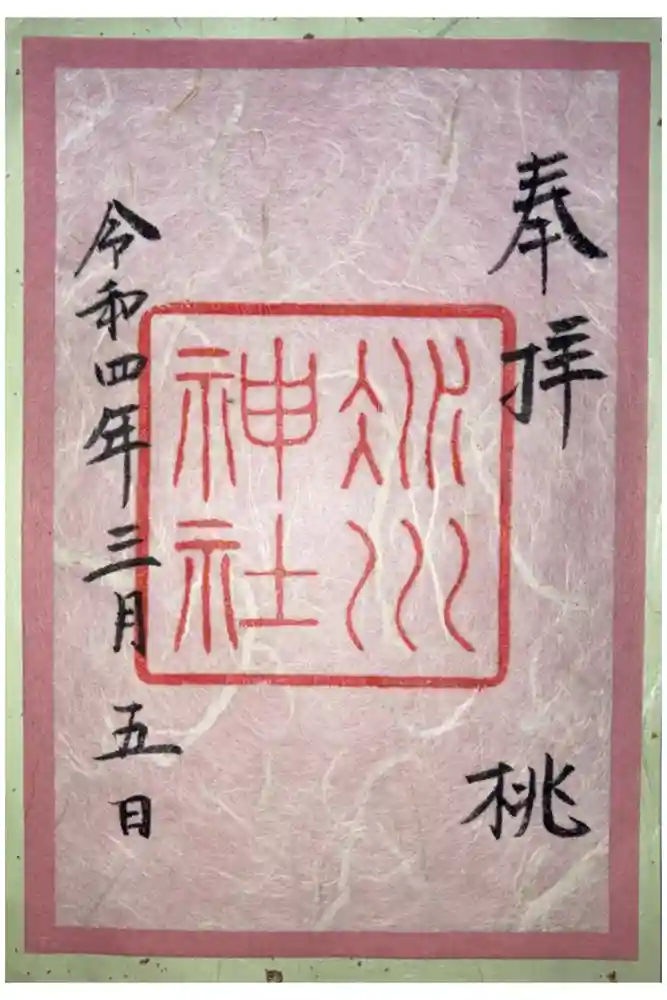 奉拝
桃
冰川
神社
令和四年三月五日